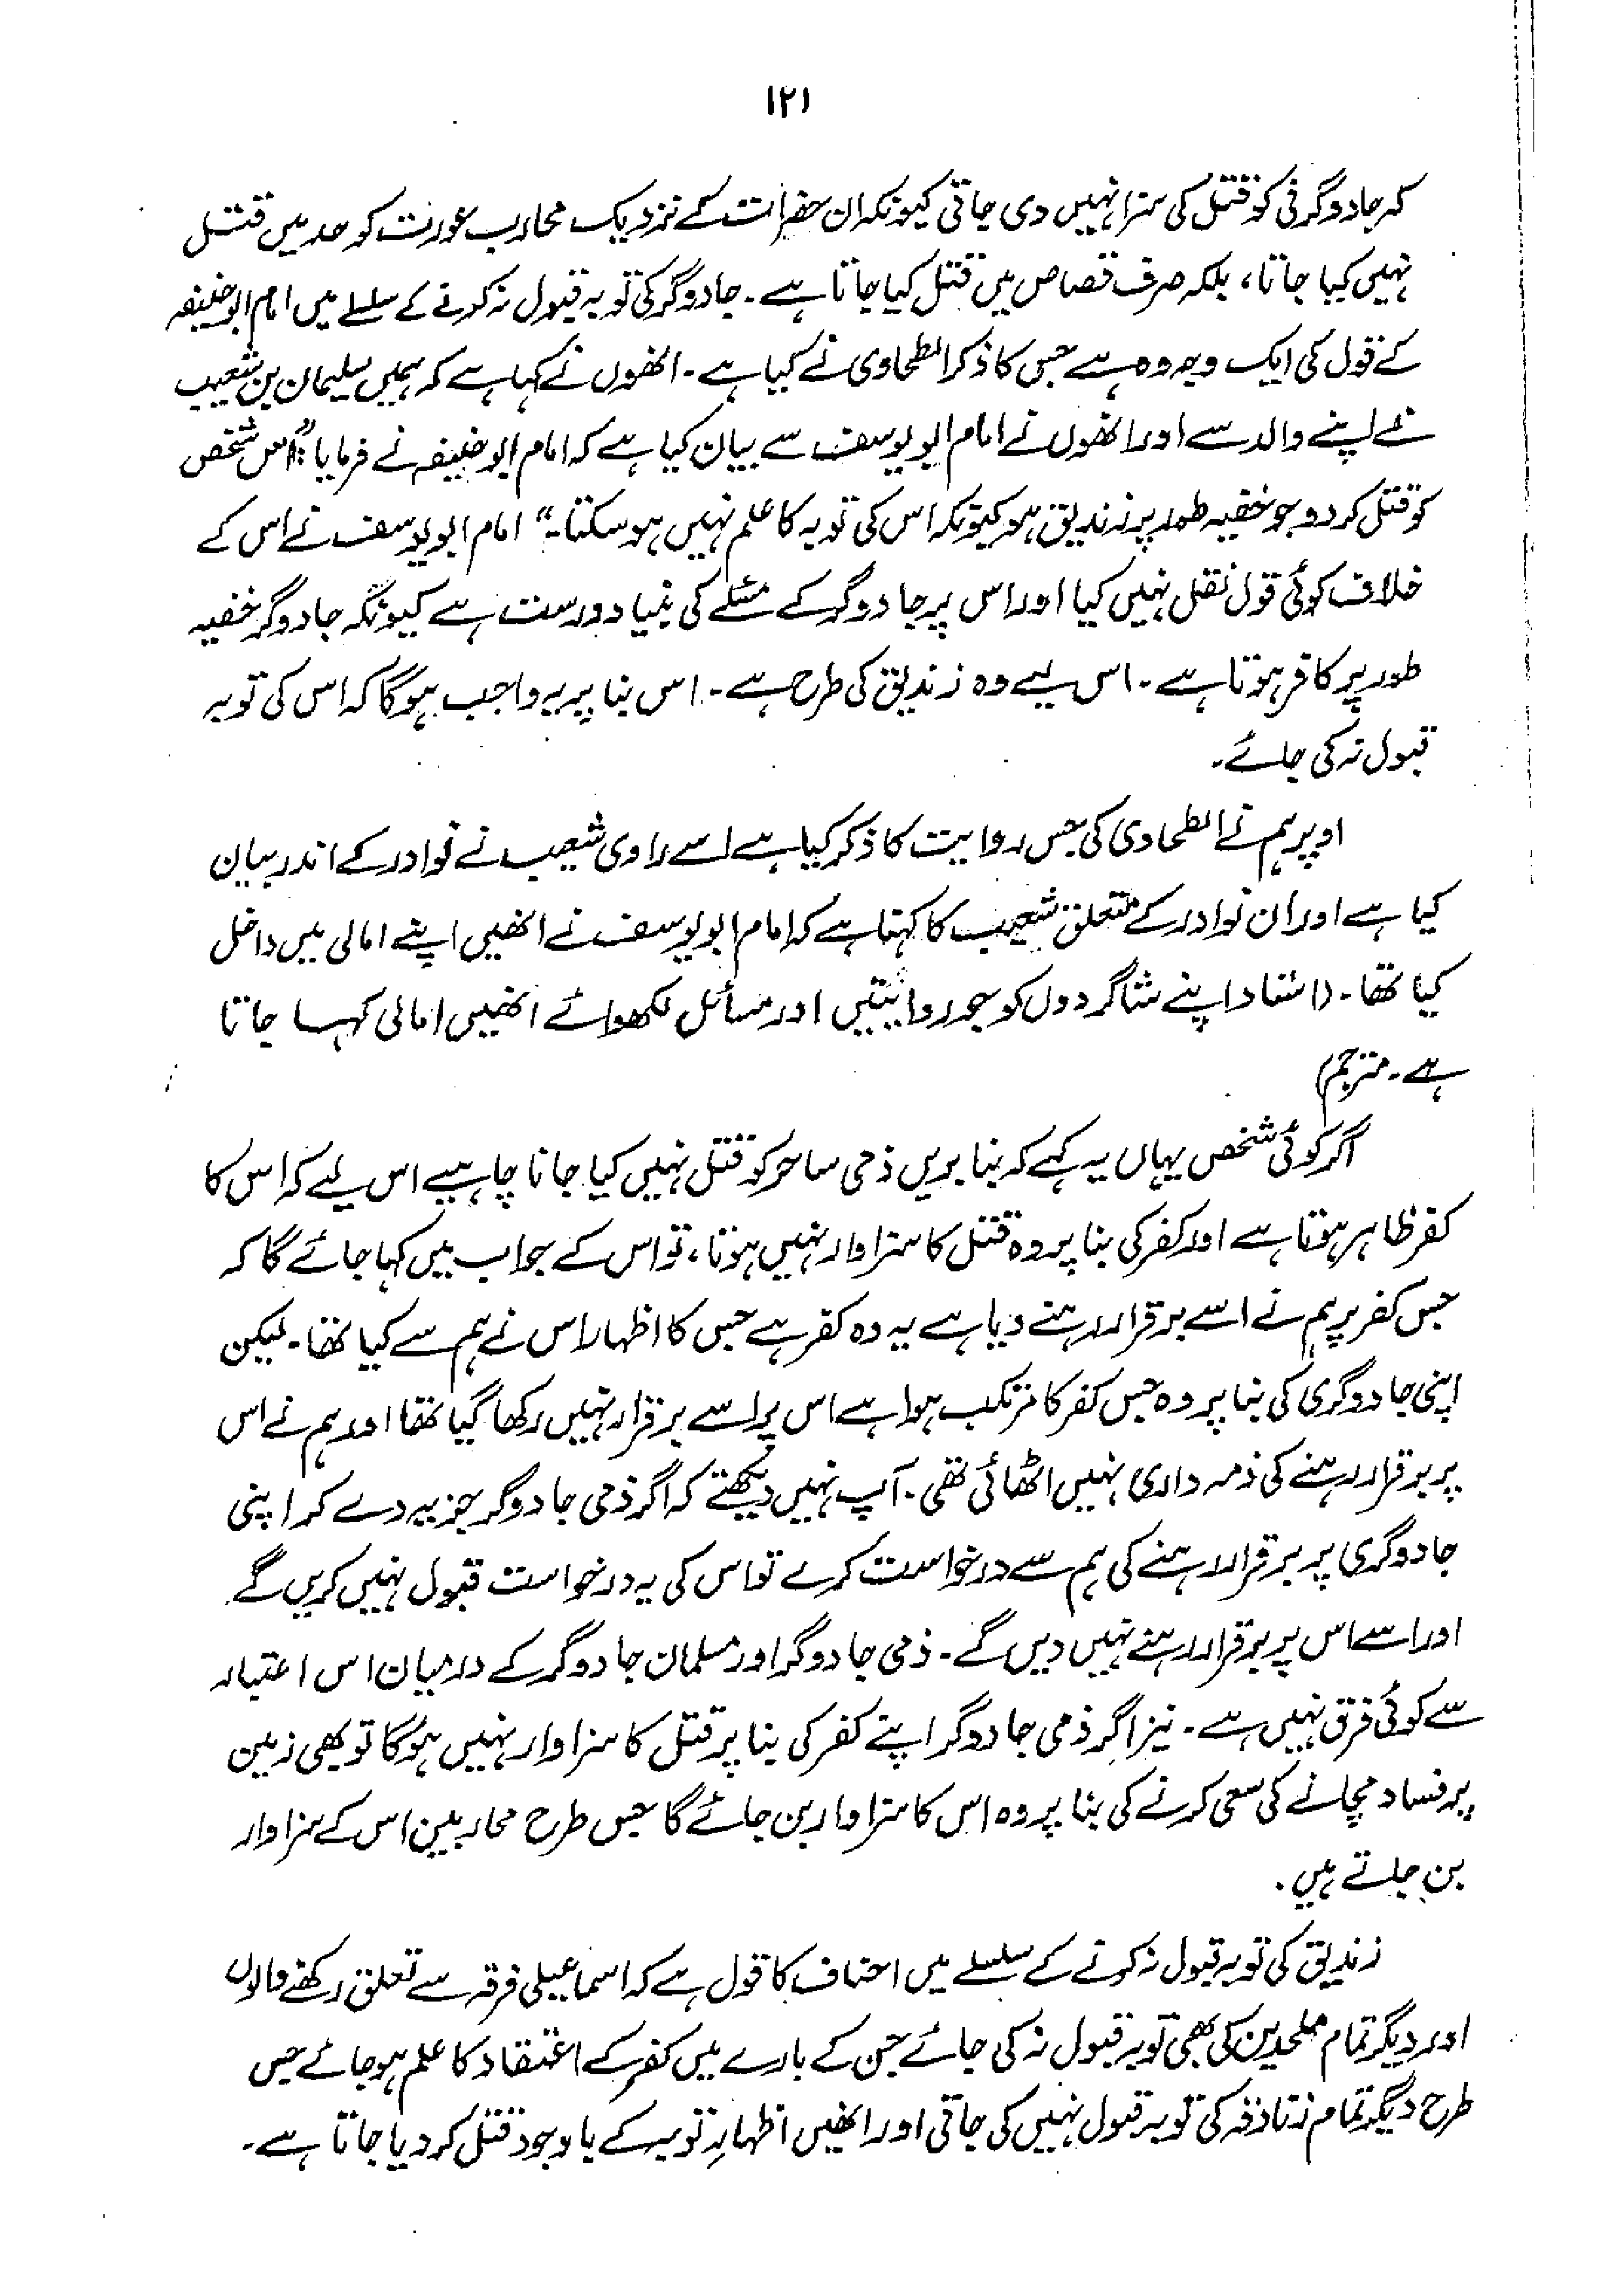 ۱۲۱
کہ جادوگرنی کو قتل کی سزا نہیں دی جاتی کیونکہ ان حضرات کے نزدیک محارب عورت کو حد میں قتل
نہیں کیا جاتا، بلکہ صرف قصاص میں قتل کیا جاتا ہے۔ جادوگر کی توبہ قبول نہ کرنے کے سلسلے میں امام ابوحنیفہ
کے قول کی ایک وجہ وہ ہے جس کا ذکر الطحاوی نے کیا ہے۔ انھوں نے کہا ہے کہ ہمیں سلیمان بن شعیب
نے اپنے والد سے اور انھوں نے امام ابو یوسف سے بیان کیا ہے کہ امام ابو حنیفہ نے فرمایا: "اس شخص
کو قتل کر دو جو خفیہ طور پر زندیق ہو کیونکہ اس کی توبہ کا علم نہیں ہو سکتا۔" امام ابو یوسف نے اس کے
خلاف کوئی قول نقل نہیں کیا اور اس پر جادوگر کے مسئلے کی بنیاد درست ہے کیونکہ جادوگر خفیہ
طور پر کافر ہوتا ہے۔ اس لیے وہ زندیق کی طرح ہے۔ اس بنا پر یہ واجب ہوگا کہ اس کی توبہ
قبول نہ کی جائے۔
اوپر ہم نے الطحاوی کی جس روایت کا ذکر کیا ہے اسے راوی شعیب نے نوادر کے اندر بیان
کیا ہے اور ان نوادر کے متعلق شعیب کا کہنا ہے کہ امام ابو یوسف نے انھیں اپنے امالی میں داخل
کیا تھا۔ (استاد اپنے شاگردوں کو جو روایتیں اور مسائل لکھوائے انھیں امالی کہا جاتا
ہے۔ مترجم)
اگر کوئی شخص یہاں یہ کہے کہ بنا بریں ذمی ساحر کو قتل نہیں کیا جانا چاہیے اس لیے کہ اس کا
کفر ظاہر ہوتا ہے اور کفر کی بنا پر وہ قتل کا سزاوار نہیں ہوتا، تو اس کے جواب میں کہا جائے گا کہ
جس کفر پر ہم نے اسے برقرار رہنے دیا ہے یہ وہ کفر ہے جس کا اظہار اس نے ہم سے کیا تھا۔ لیکن
اپنی جادوگری کی بنا پر وہ جس کفر کا مرتکب ہوا ہے اس پر اسے برقرار نہیں رکھا گیا تھا اور ہم نے اس
پر برقرار رہنے کی ذمہ داری نہیں اٹھائی تھی۔ آپ نہیں دیکھتے کہ اگر ذمی جادوگر جزیہ دے کر اپنی
جادوگری پر برقرار رہنے کی ہم سے درخواست کرے تو اس کی یہ درخواست قبول نہیں کریں گے
اور اسے اس پر برقرار رہنے نہیں دیں گے۔ ذمی جادوگر اور مسلمان جادوگر کے درمیان اس اعتبار
سے کوئی فرق نہیں ہے۔ نیز اگر ذمی جادوگر اپنے کفر کی بنا پر قتل کا سزاوار نہیں ہوگا تو بھی زمین
پر فساد مچانے کی سعی کرنے کی بنا پر وہ اس کا سزاوار بن جائے گا جس طرح محاربین اس کے سزاوار
بن جاتے ہیں۔
زندیق کی توبہ قبول نہ کرنے کے سلسلے میں احناف کا قول ہے کہ اسماعیلی فرقہ سے تعلق رکھنے والوں
اور دیگر تمام ملحدین کی بھی توبہ قبول نہ کی جائے جن کے بارے میں کفر کے اعتقاد کا علم ہو جائے جس
طرح دیگر تمام زنادقہ کی توبہ قبول نہیں کی جاتی اور انھیں اظہارِ توبہ کے باوجود قتل کر دیا جاتا ہے۔